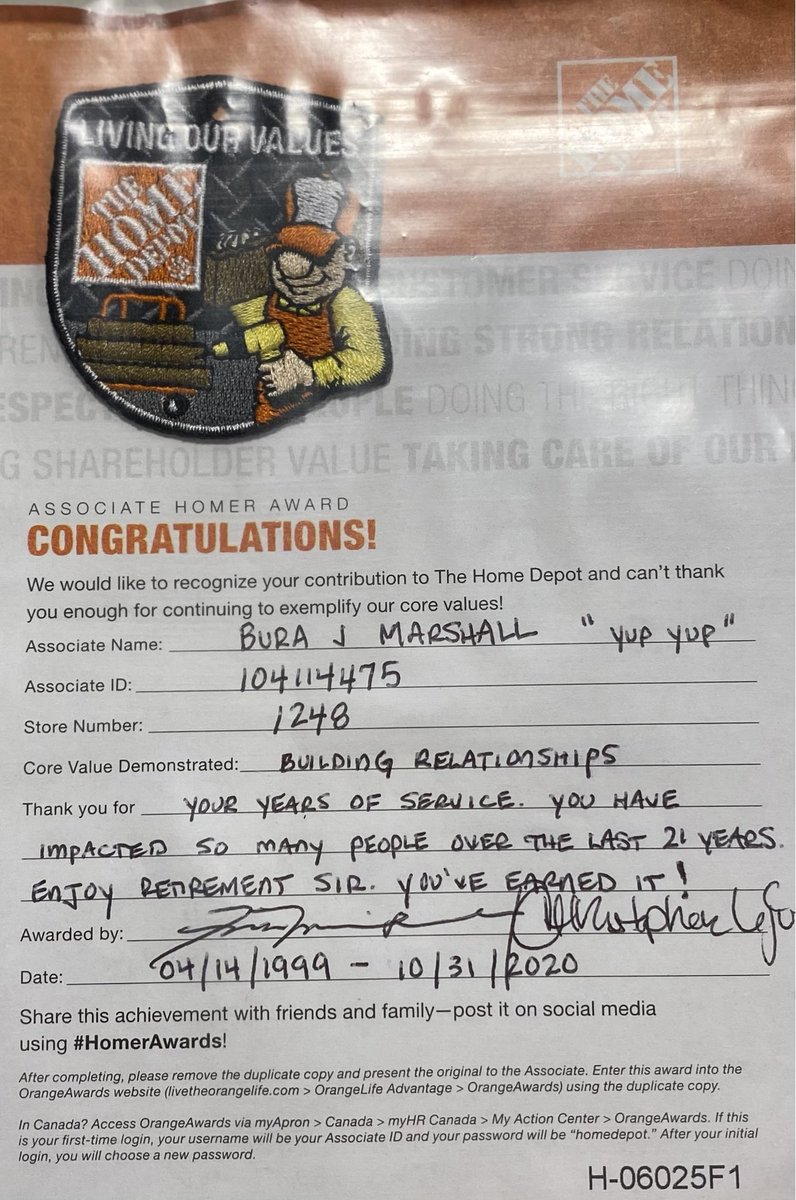 LIVING OUR VALUES
THE
HOME
DEPOT
THE
HOME
CUSTOMER SERVICE DOIN
ING STRONG RELATION
ESPEC PLE DOING THE RIGHT THIN
G SHAREHOLDER VALUE TAKING CARE OF OUR
ASSOCIATE HOMER AWARD
CONGRATULATIONS!
We would like to recognize your contribution to The Home Depot and can't thank
you enough for continuing to exemplify our core values!
Associate Name: BURA J MARSHALL "YUP YUP"
Associate ID: 104114475
Store Number: 1248
Core Value Demonstrated: BUILDING RELATIONSHIPS
Thank you for YOUR YEARS OF SERVICE. YOU HAVE
IMPACTED SO MANY PEOPLE OVER THE LAST 21 YEARS.
ENJOY RETIREMENT SIR. YOU'VE EARNED IT!
Awarded by:
Date: 04/14/1999 - 10/31/2020
Share this achievement with friends and family—post it on social media
using #HomerAwards!
After completing, please remove the duplicate copy and present the original to the Associate. Enter this award into the
OrangeAwards website (livetheorangelife.com > OrangeLife Advantage > OrangeAwards) using the duplicate copy.
In Canada? Access OrangeAwards via myApron > Canada > myHR Canada > My Action Center > OrangeAwards. If this
is your first-time login, your username will be your Associate ID and your password will be "homedepot." After your initial
login, you will choose a new password.
H-06025F1